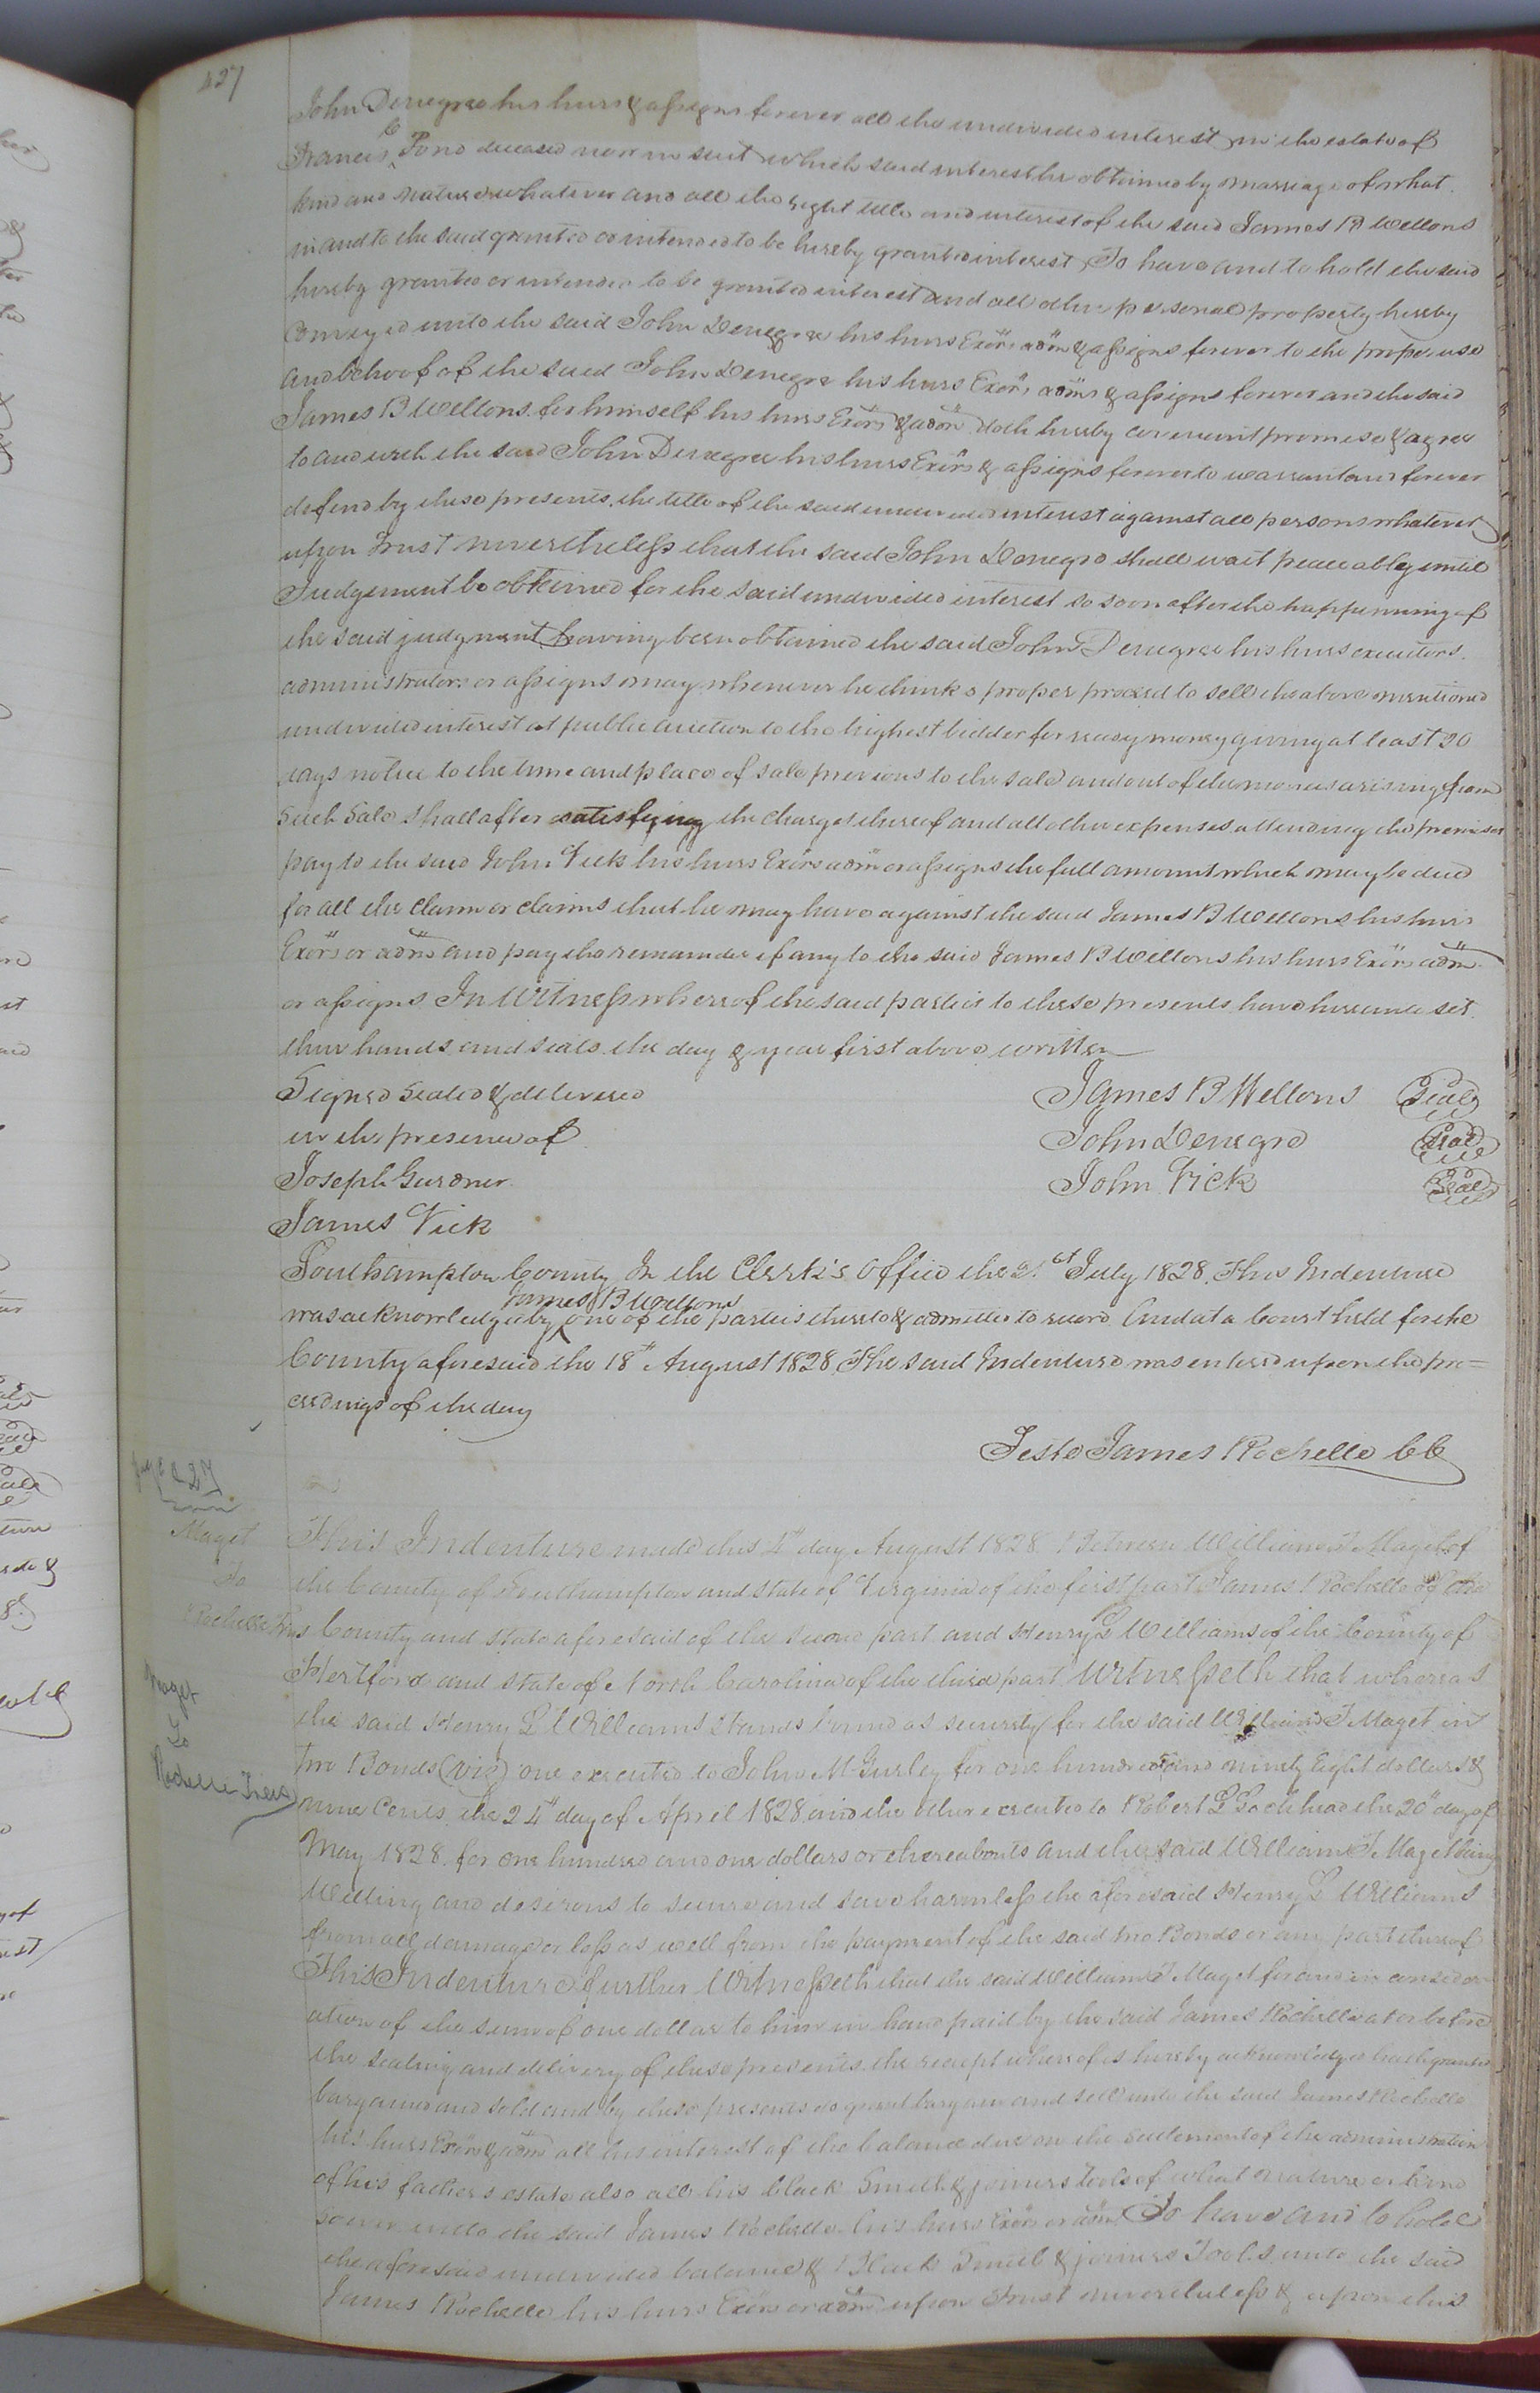 427
John Denegre his heirs & assigns forever all the undivided interest in the estate of
Francis C Pond deceased now in suit which said interest he obtained by marriage of what
kind and nature whatever and all the right title and interest of the said James B Wellons
in and to the said granted or intended to be hereby granted interest, To have and to hold the said
hereby granted or intended to be granted interest and all other personal property hereby
Conveyed unto the said John Denegre his heirs Exors admrs & assigns forever to the proper use
and behoof of the said John Denegre his heirs Exors admrs & assigns forever and the said
James B Wellons for himself his heirs Exors & admrs doth hereby covenant promise & agree
to and with the said John Denegre his heirs Exors & assigns forever to warrant and forever
defend by these presents the title of the said undivided interest against all persons whatever
upon Trust nevertheless that the said John Denegre shall wait peaceably until
Judgement be obtained for the said undivided interest so soon after the happening of
the said judgment having been obtained the said John Denegre his heirs executors
administrators or assigns may whenever he thinks proper proceed to sell the above mentioned
undivided interest at public auction to the highest bidder for ready money giving at least 20
days notice to the time and place of sale previous to the sale and out of the monies arising from
Such Sale shall after satisfying the charges thereof and all other expenses attending the premises
pay to the said John Vick his heirs Exors admrs or assigns the full amount which may be due
for all the claim or claims that he may have against the said James B Wellons his heirs
Exors or admrs and pay the remainder if any to the said James B Wellons his heirs Exors admrs
or assigns In Witness whereof the said parties to these presents have hereunto set
their hands and seals the day & year first above written
Signed Sealed & delivered James B Wellons Seal
in the presence of John Denegre Seal
Joseph Gurdner John Vick Seal
James Vick
Southampton County In the Clerk's Office the 21st July 1828 This Indenture
James B Wellons
was acknowledged by one of the parties thereto & admitted to record And at a Court held for the
County aforesaid the 18th August 1828 The said Indenture was entered upon the pro=
ceedings of the day
Teste James Rochelle CC
page 427
Maget
To
Rochelle Trus
This Indenture made this 4th day August 1828 Between William T Maget of
the County of Southampton and State of Virginia of the first part James Rochelle of the
County and state aforesaid of the second part and Henry L Williams of the County of
Hertford and state of North Carolina of the third part Witnesseth that whereas
Maget
To
Rochelle Trus
the said Henry L Williams stands bound as security for the said William T Maget in
two Bonds (viz) one executed to John M Gurley for one hundred and ninety Eight dollars &
nine Cents the 24th day of April 1828 and the other executed to Robert L Lochhead the 20th day of
May 1828 for one hundred and one dollars or thereabouts and the said William T Maget being
Willing and desirous to secure and save harmless the aforesaid Henry L Williams
from all damage or loss as well from the payment of the said two Bonds or any part thereof
This Indenture further Witnesseth that the said William T Maget for and in consider
ation of the sum of one dollar to him in hand paid by the said James Rochelle at or before
the sealing and delivery of these presents the receipt whereof is hereby acknowledged hath granted
bargained and sold and by these presents do grant bargain and sell unto the said James Rochelle
his heirs Exors & admrs all his interest of the balance due on the settlement of the administration
of his father's estate also all his black Smith & joiners tools of what nature or kind
soever unto the said James Rochelle his heirs Exors or admrs To have and to hold
the aforesaid undivided balance & Black Smith & joiners Tools unto the said
James Rochelle his heirs Exors or admrs upon Trust nevertheless & upon this